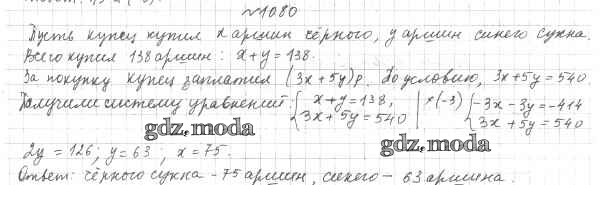 №1080
Пусть купец купил x аршин чёрного, y аршин синего сукна.
Всего купил 138 аршин: x+y=138.
За покупку купец заплатил (3x+5y)р. По условию, 3x+5y=540
Получили систему уравнений: { x+y=138, 3x+5y=540 | ×(-3) { -3x-3y=-414 3x+5y=540
gdz.moda
gdz.moda
2y=126; y=63; x=75.
Ответ: чёрного сукна - 75 аршин, синего - 63 аршина.